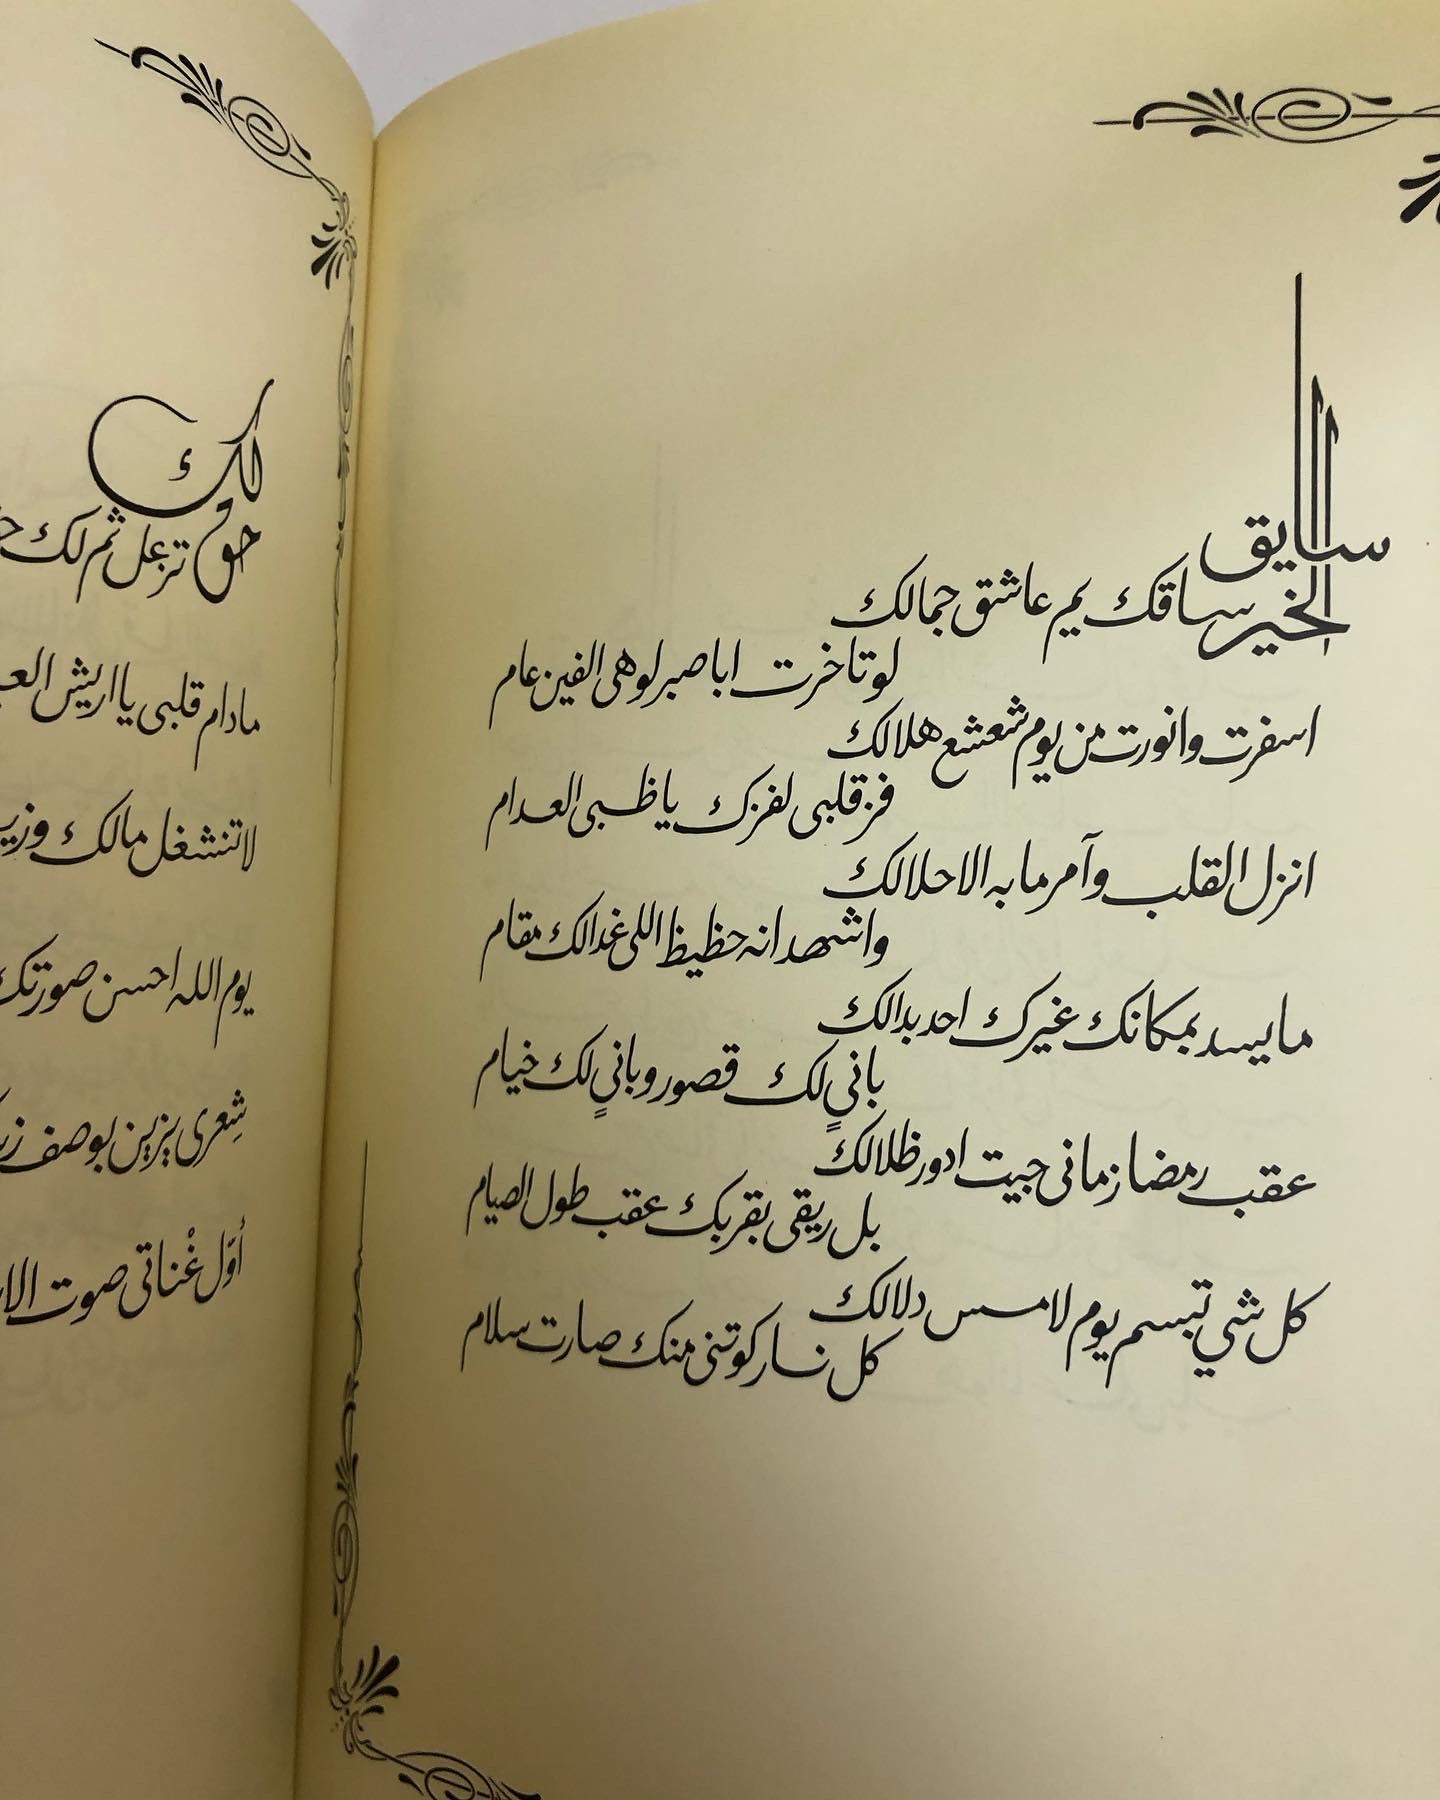 سايق
الخير ساقك يم عاشق جمالك
لو تاخرت اباصبر لو هي الفين عام
اسفرت وانورت من يوم شعشع هلالك
فز قلبي لفزك يا ظبي العدام
انزل القلب وآمر ما به الا حلالك
واشهد انه حظيظ اللي غدالك مقام
ما يسد بمكانك غيرك احد بدالك
باني لك قصور وباني لك خيام
عقب رمضا زماني جيت ادور ظلالك
بل ريقي بقربك عقب طول الصيام
كل شي تبسم يوم لامس دلالك
كل نار كوتني منك صارت سلام
لك
حق تزعل ثم لك
مادام قلبي يا اريش
لا تنشغل مالك
يوم الله احسن صورتك
شعري يزين بوصف
أول غناتي صوت